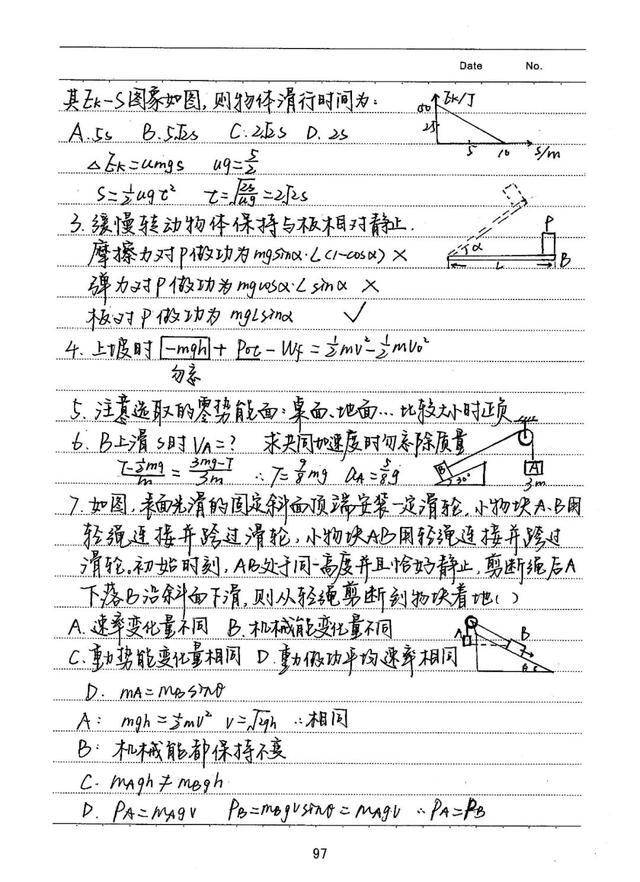 Date No.
其Ek-S图象如图,则物体滑行时间为:
A.5s B.5√2s C.2√2s D.2s
Ek/J
50
25
5 10 S/m
△Ek=umgs ug=5/2
S=½ugt² t=√(2s/ug)=2√2s
3.缓慢转动物体保持与板相对静止.
摩擦力对P做功为mgsinα·L(1-cosα) ×
弹力对P做功为mgcosα·Lsinα ×
板对P做功为mgLsinα ✓
α P L B
4.上坡时 -mgh + Pot - Wf = ½mv²-½mv₀²
勿忘
5.注意选取的零势能面:桌面、地面…比较大小时正负
6.B上滑S时VA=? 求共同加速度时勿忘除质量
(T-½mg)/m = (3mg-T)/3m ∴T=9/8mg aA=5/8g
B 30° A 3m
7.如图,表面光滑的固定斜面顶端安装一定滑轮,小物块A、B用
轻绳连接并跨过滑轮,小物块AB用轻绳连接并跨过
滑轮。初始时刻,AB处于同一高度并且恰好静止,剪断绳后A
下落B沿斜面下滑,则从轻绳剪断刻物块着地( )
A.速率变化量不同 B.机械能变化量不同
C.重力势能变化量相同 D.重力做功平均速率相同
A B
D. mA=mBsinθ
A: mgh=½mv² v=√2gh ∴相同
B: 机械能都保持不变
C. mAgh≠mBgh
D. PA=mAgv PB=mBgvsinθ=mAgv ∴PA=PB
97